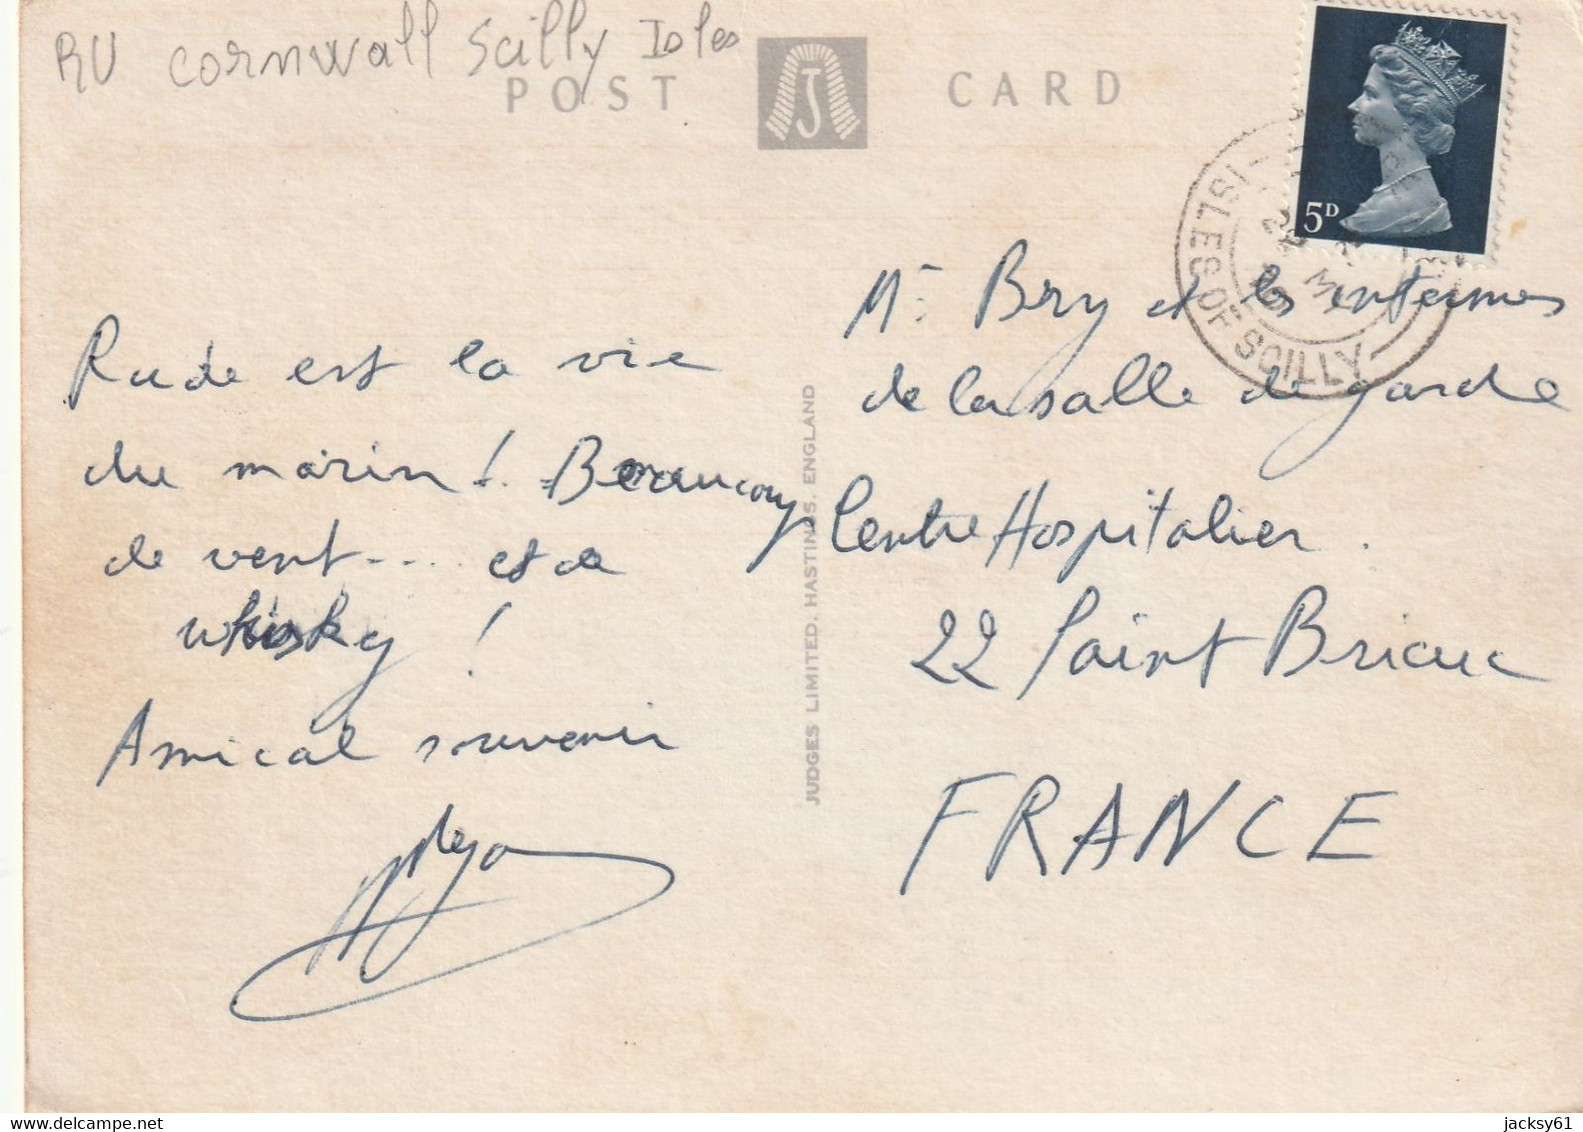 RU cornwall Scilly Isles
POST CARD
5D
ISLES OF SCILLY
Rude est la vie
du marin! Beaucoup
de vent.... et de
whisky!
Amical souvenir
JUDGES LIMITED, HASTINGS, ENGLAND
Mr Bry et les internes
de la salle de garde
Centre Hospitalier.
22 Saint Brieuc
FRANCE
jacksy61